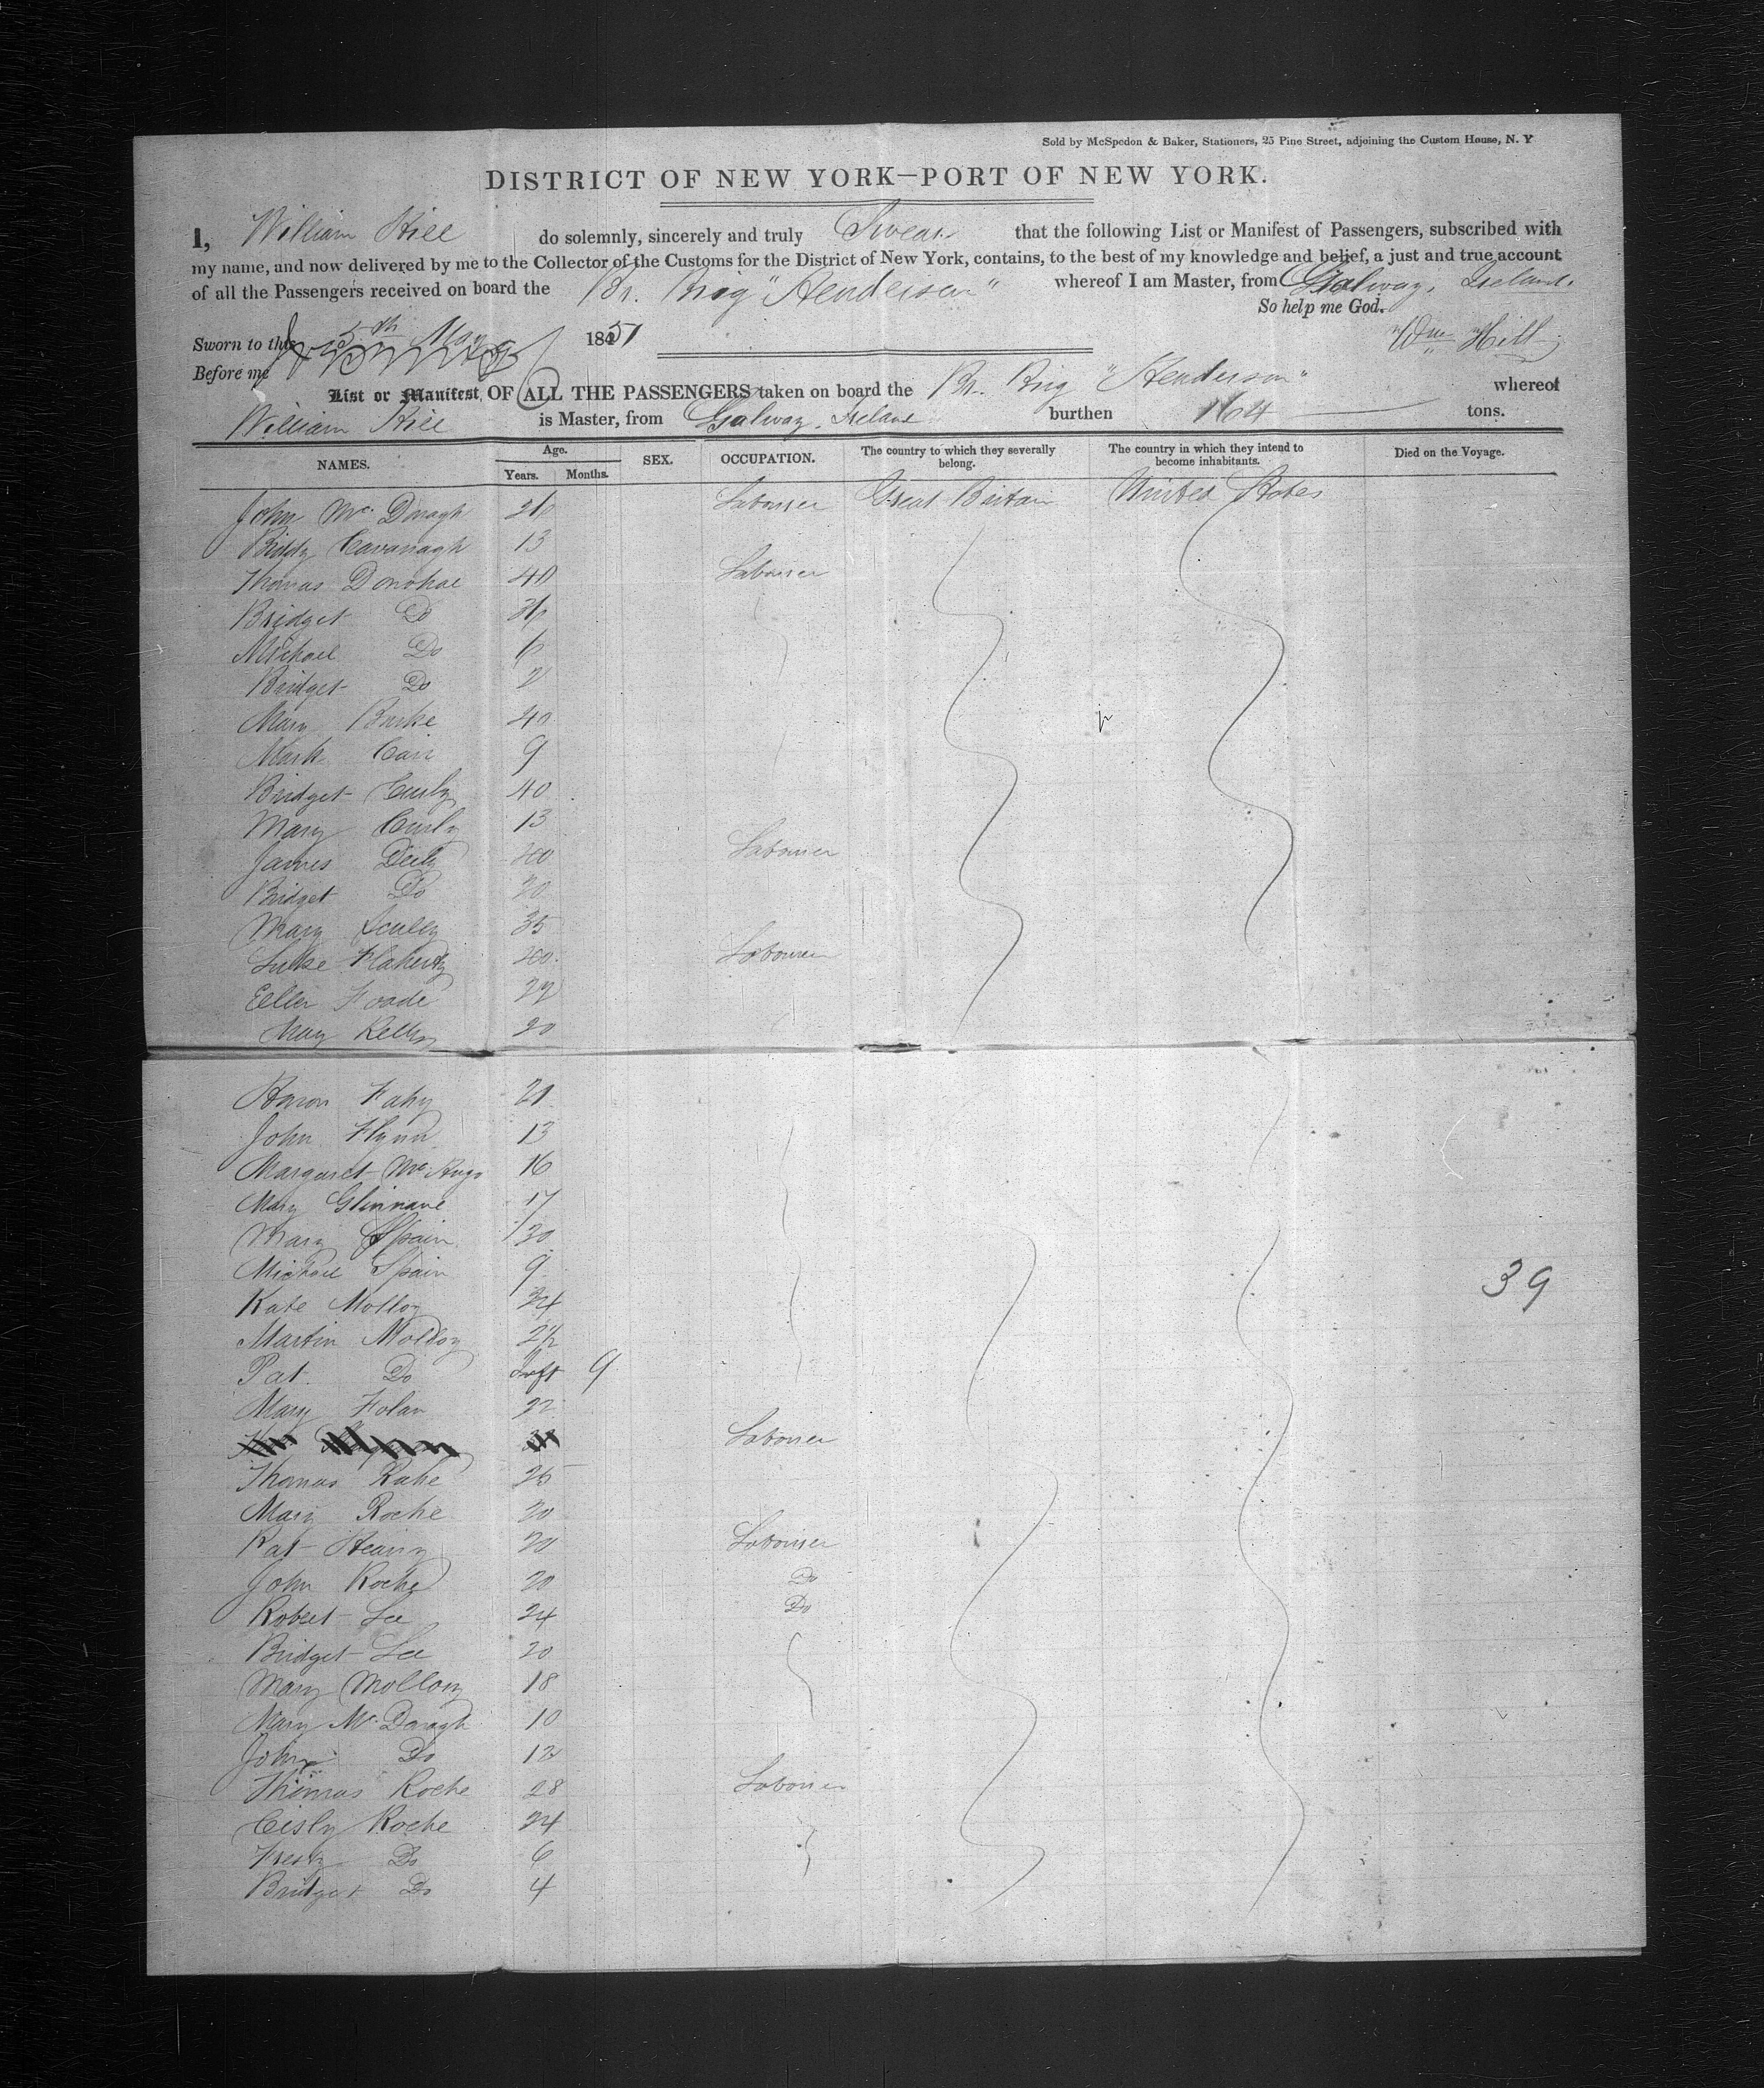 Sold by McSpedon & Baker, Stationers, 25 Pine Street, adjoining the Custom House, N. Y
DISTRICT OF NEW YORK—PORT OF NEW YORK.
I, William Hill do solemnly, sincerely and truly Swear that the following List or Manifest of Passengers, subscribed with
my name, and now delivered by me to the Collector of the Customs for the District of New York, contains, to the best of my knowledge and belief, a just and true account
of all the Passengers received on board the Br. Brig "Henderson" whereof I am Master, from Galway, Ireland.
So help me God.
Sworn to this 5th May 1851 Wm Hill
Before me
List or Manifest OF ALL THE PASSENGERS taken on board the Br. Brig "Henderson" whereof
William Hill is Master, from Galway, Ireland burthen 164 tons.
NAMES. Age. Years. Months. SEX. OCCUPATION. The country to which they severally belong. The country in which they intend to become inhabitants. Died on the Voyage.
John Mc. Donagh Labourer Great Britain United States
Biddy Cavanagh 13
Thomas Donohoe 40 Labourer
Bridget Do
Michael Do 6
Bridget Do 2
Mary Burke 40
Mark Carr 9
Bridget Curly 40
Mary Curly 13
James Deely Labourer
Bridget Do 20
Mary Scully 35
Luke Flaherty Labourer
Ellen Foade 22
Mary Kelly 20
Honor Fahy 21
John Flynn 13
Margaret Mc Hugo 16
Mary Glinnane 17
Mary Spain 30
Michael Spain 9
Kate Molloy 24
Martin Molloy 2½
Pat. Do Inft 9
Mary Folan 22
Labourer
Thomas Kahe 25
Mary Roche 20
Pat Heany 20 Labourer
John Roche 20 Do
Robert Lee 24 Do
Bridget Lee 20
Mary Molloy 18
Mary Mc Donagh 10
John Do 12
Thomas Roche 28 Labourer
Cisly Roche 24
Do 6
Bridget Do 4
39